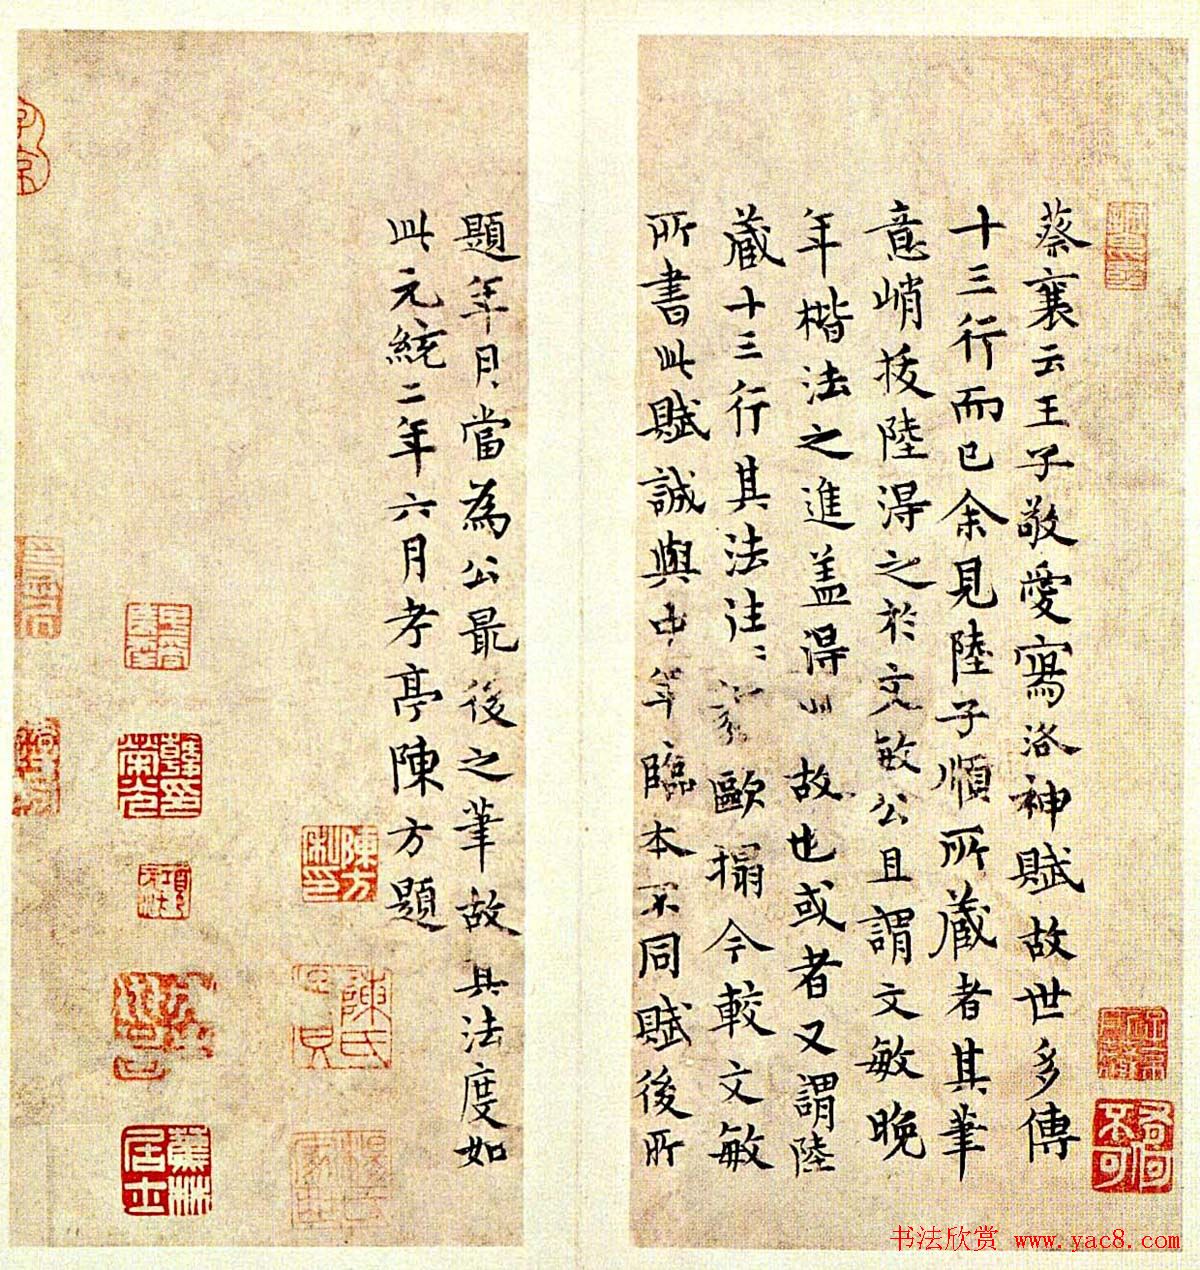 蔡襄云王子敬愛寫洛神賦故世多傳
十三行而已余見陸子順所藏者其筆
意峭拔陸得之於文敏公且謂文敏晚
年楷法之進盖得此故也或者又謂陸
藏十三行其法往往 歐搨今較文敏
所書此賦誠與中年臨本不同賦後所
題年月當為公最後之筆故其法度如
此元統二年六月孝亭陳方題
陳方私印
陳氏
韓荣光印
蕉林居士
不可
书法欣赏 www.yac8.com